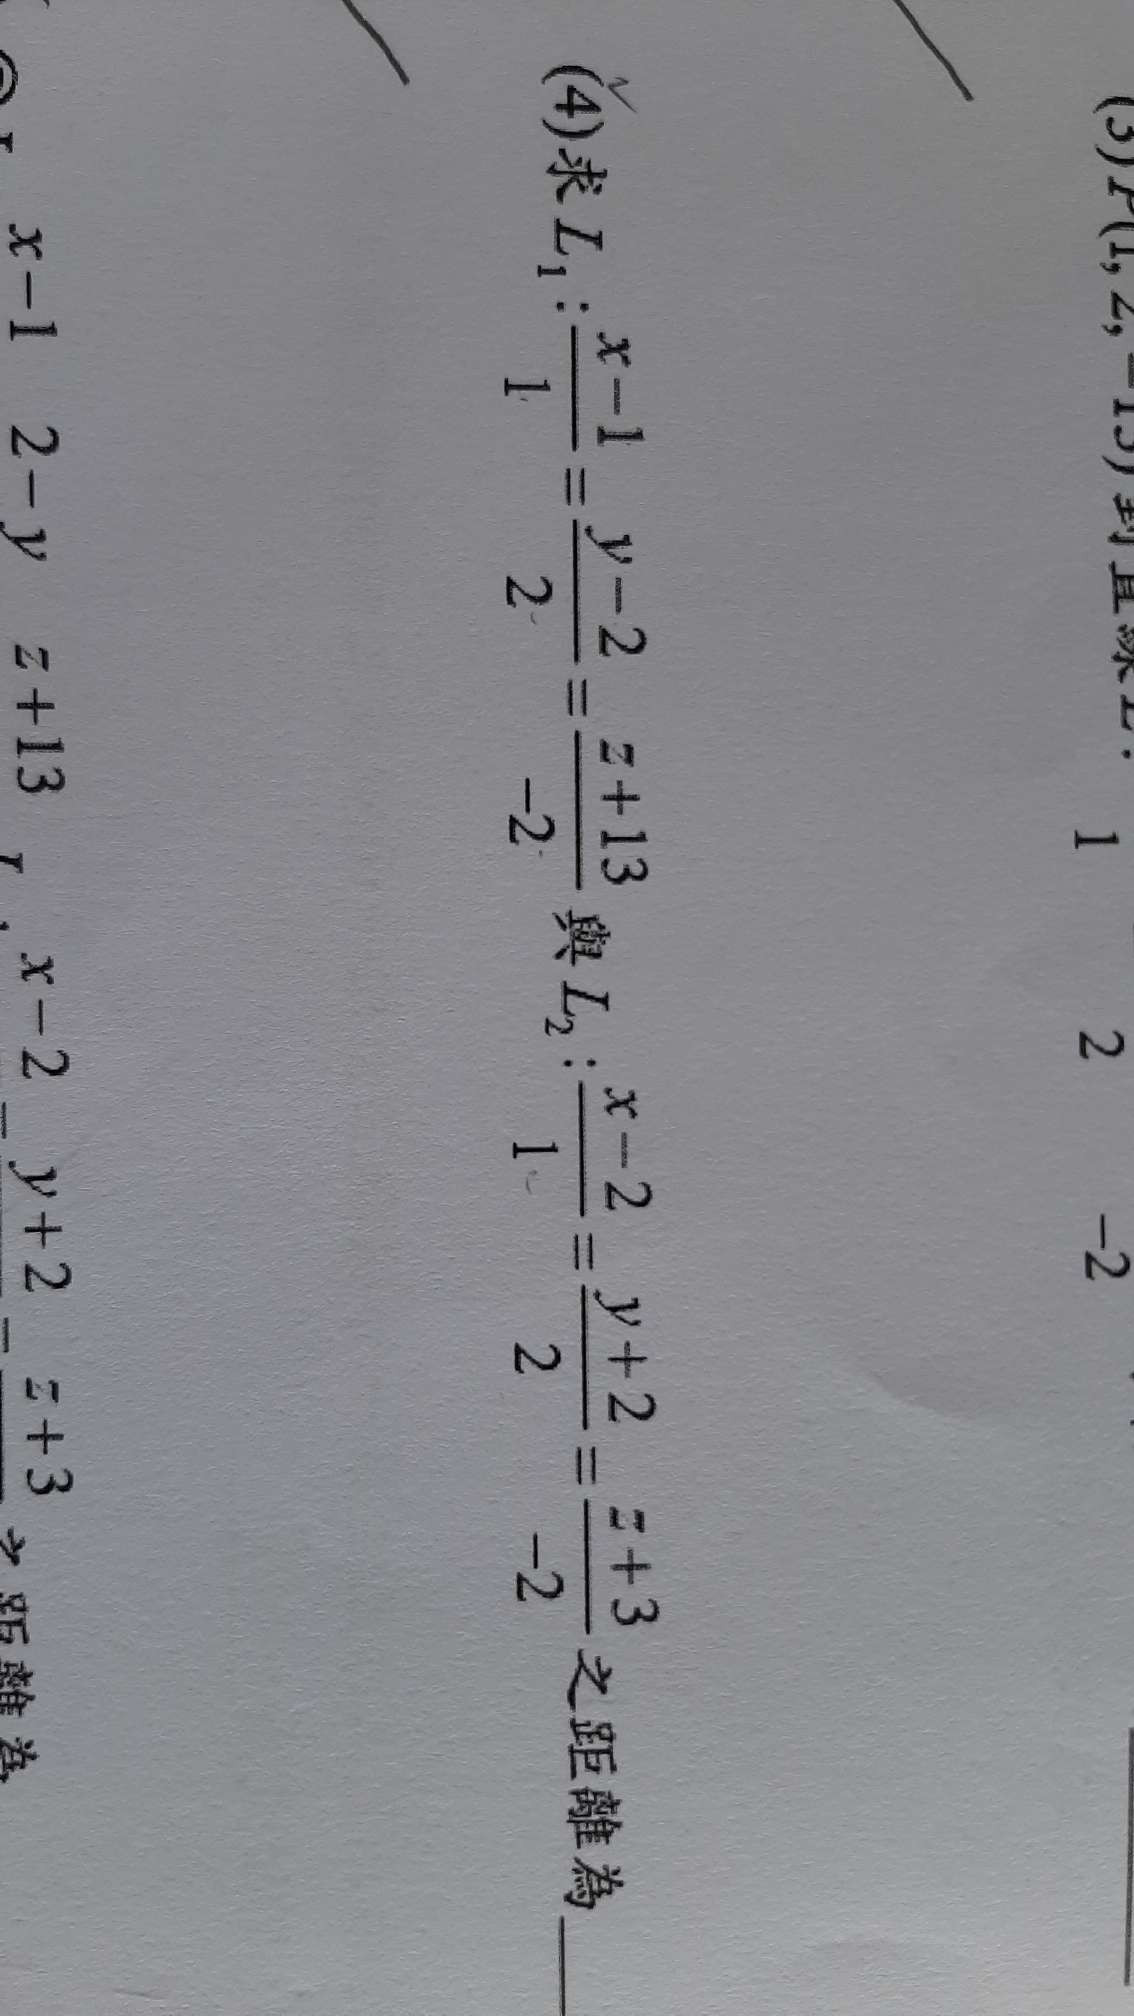 (3) P(1, 2, -13) 到直線 L :
1 2 -2
(4) 求 L₁ : \frac{x-1}{1} = \frac{y-2}{2} = \frac{z+13}{-2} 與 L₂ : \frac{x-2}{1} = \frac{y+2}{2} = \frac{z+3}{-2} 之距離為____
x-1 2-y z+13 x-2 = y+2 = z+3 之距離為